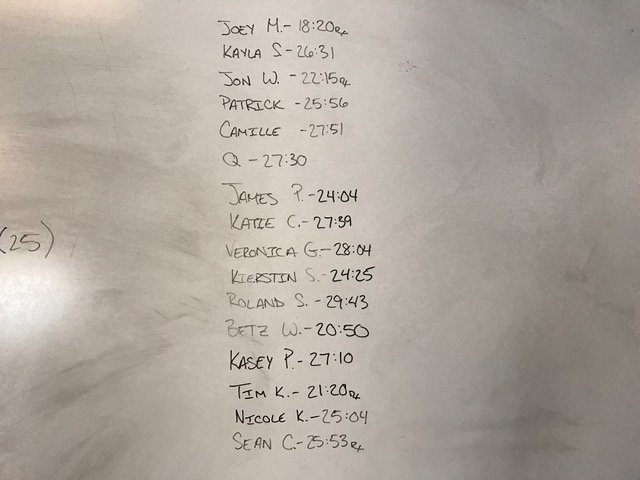 JOEY M. - 18:20 Rx
KAYLA S - 26:31
JON W. - 22:15 Rx
PATRICK - 25:56
CAMILLE - 27:51
Q - 27:30
JAMES P. - 24:04
KATIE C. - 27:39
(25)
VERONICA G. - 28:04
KIERSTIN S. - 24:25
ROLAND S. - 29:43
BETZ W. - 20:50
KASEY P. - 27:10
TIM K. - 21:20 Rx
NICOLE K. - 25:04
SEAN C. - 25:53 Rx